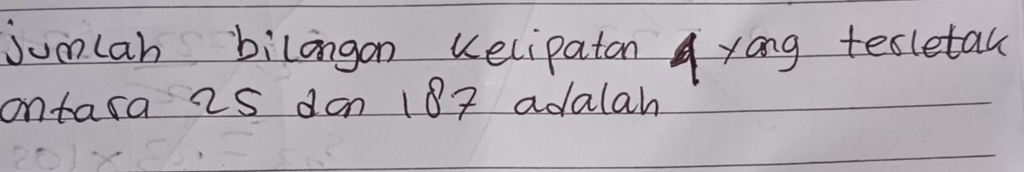 Jumlah bilangan kelipatan 4 yang terletak
antara 25 dan 187 adalah